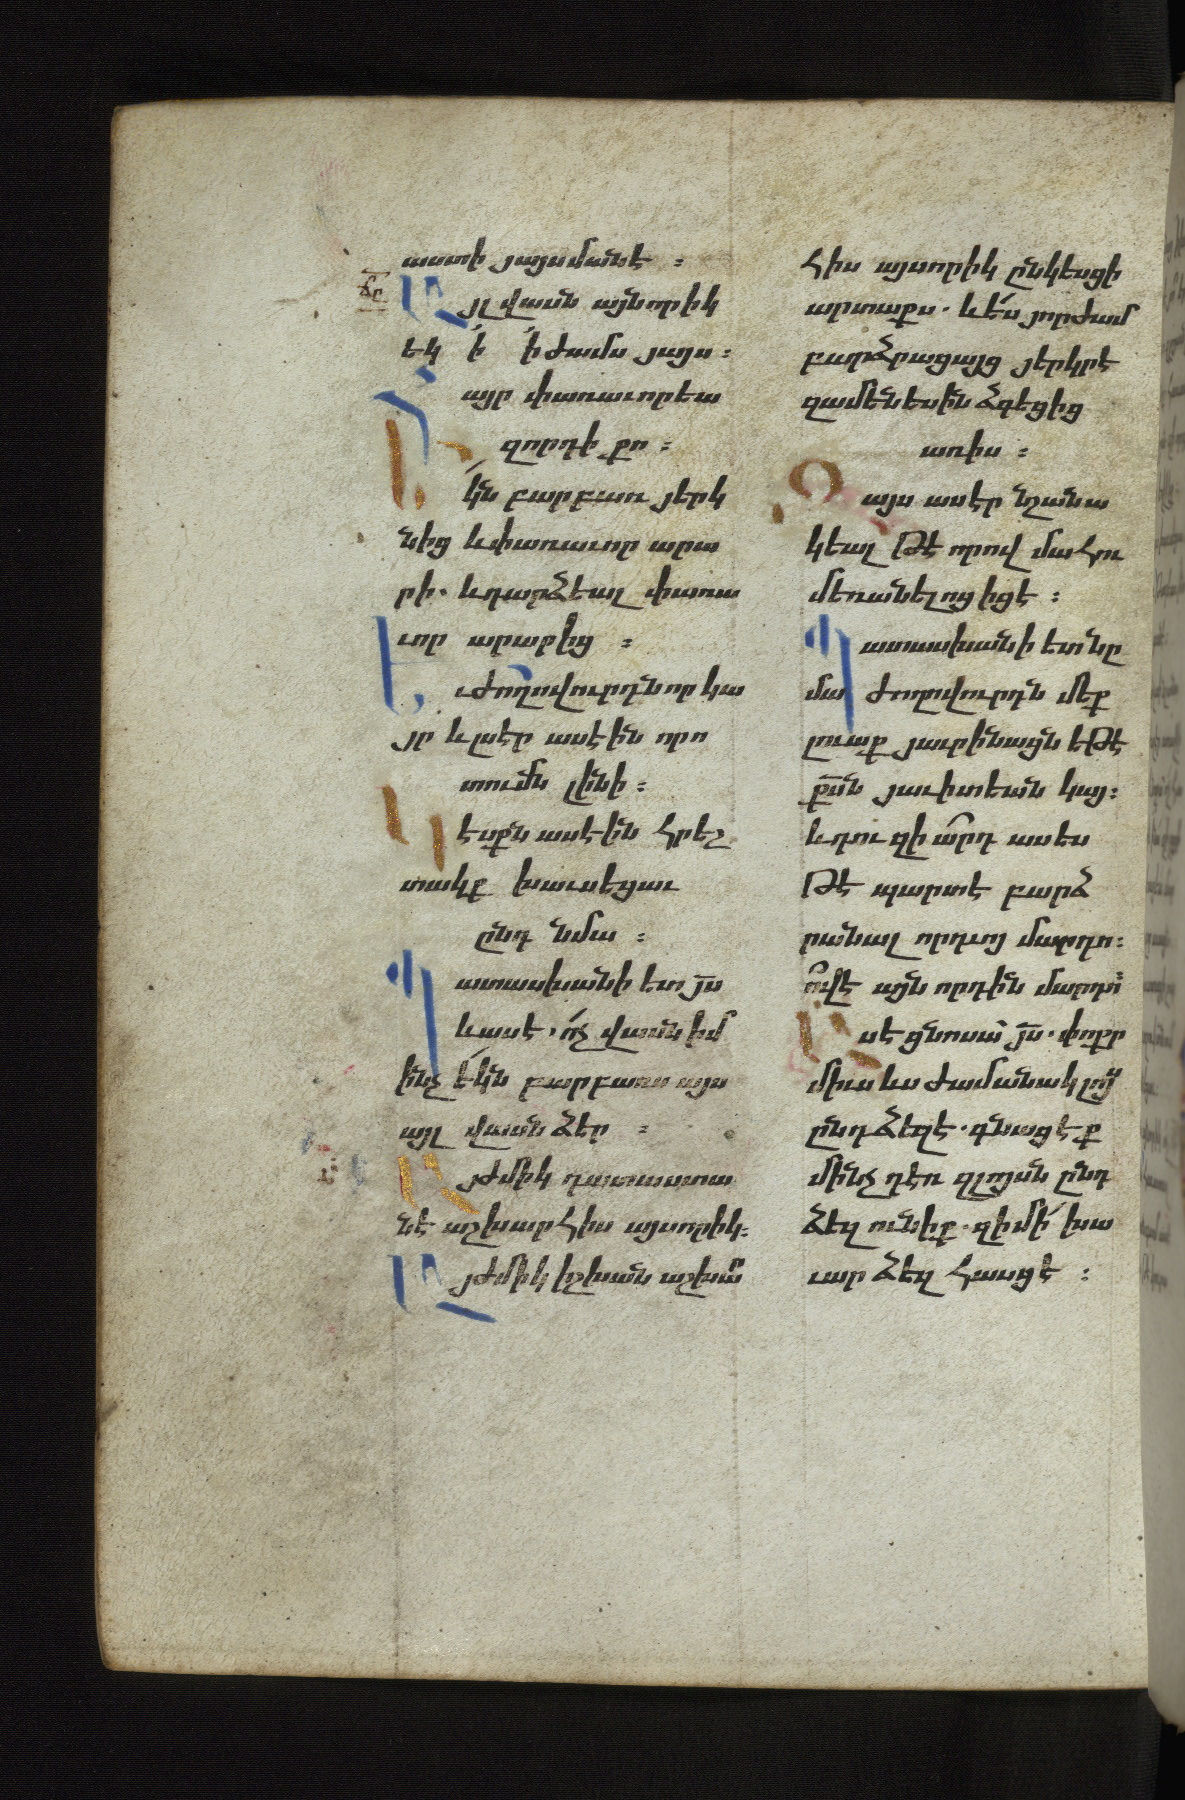 ատի յայսմանէ ։
ճը
Այլ վասն այնորիկ
եկ ի ի ժամս յայս ։
Հայր փառաւորեա
զորդի քո ։
Եկն բարբառ յերկ
նից և փառաւոր արա
րի. և դարձեալ փառա
ւոր արարից ։
Եւ ժողովուրդն որ կա
յր և լսէր ասէին որո
տումն լինի ։
Կէսքն ասէին հրեշ
տակք խաւսեցաւ
ընդ նմա ։
Պատասխանի ետ յս
և ասէ. ոչ վասն իմ
ինչ եկն բարբառս այս
այլ վասն ձեր ։
Այժմիկ դատաստա
նէ աշխարհիս այսորիկ։
Այժմիկ իշխան աշխար
հիս այսորիկ ընկեսցի
արտաքս. և ես յորժամ
բարձրացայց յերկրէ
զամենեսին ձգեցից
առիս ։
Զայս ասէր նշանա
կեալ թէ որով մահու
մեռանելոց իցէ ։
Պատասխանի ետ նը
մա ժողովուրդն մեք
լուաք յաւրինացն եթէ
քսն յաւիտեան կայ։
և դու զիարդ ասես
թէ պարտէ բարձ
րանալ որդւոյ մարդո։
ով է այն որդին մարդո։
Ասէ ցնոսա յս. փոքր
միւս ևս ժամանակ լոյս
ընդ ձեզ է. գնացէք
մինչ դեռ զլոյսն ընդ
ձեզ ունիք. զի մի խա
ւար ձեզ հասցէ ։